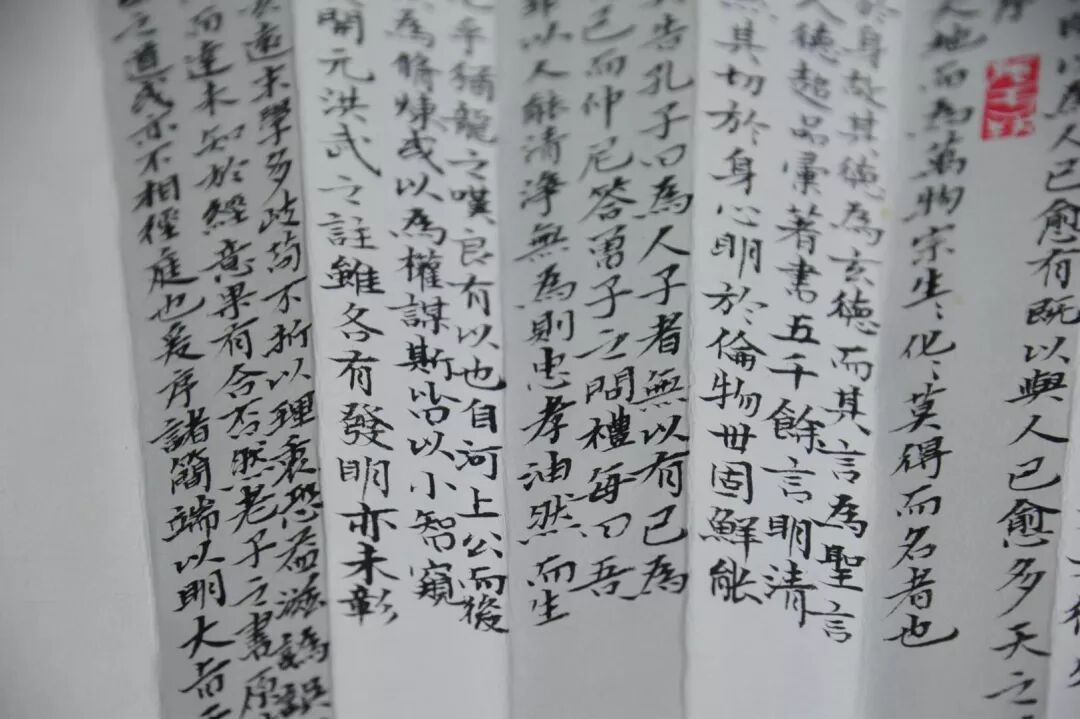 以為人已愈有既以與人已愈多天之
序
地而為萬物宗生〻化〻莫得而名者也
於身故其德為玄德而其言為聖言
人德超品彙著書五千餘言明清
其切於身心明於倫物世固鮮能
告孔子曰為人子者無以有己為
己而仲尼答曾子之問禮每曰吾
以人能清淨無為則忠孝油然而生
乎猶龍之嘆良有以也自河上公而後
為脩煉或以為權謀斯皆以小智窺
開元洪武之註雖各有發明亦未彰
遠末學多歧苟不折以理衷恐益滋譌誤
而違未知於經意果有合否然老子之書原
之道或亦不相徑庭也爰序諸簡端以明大旨